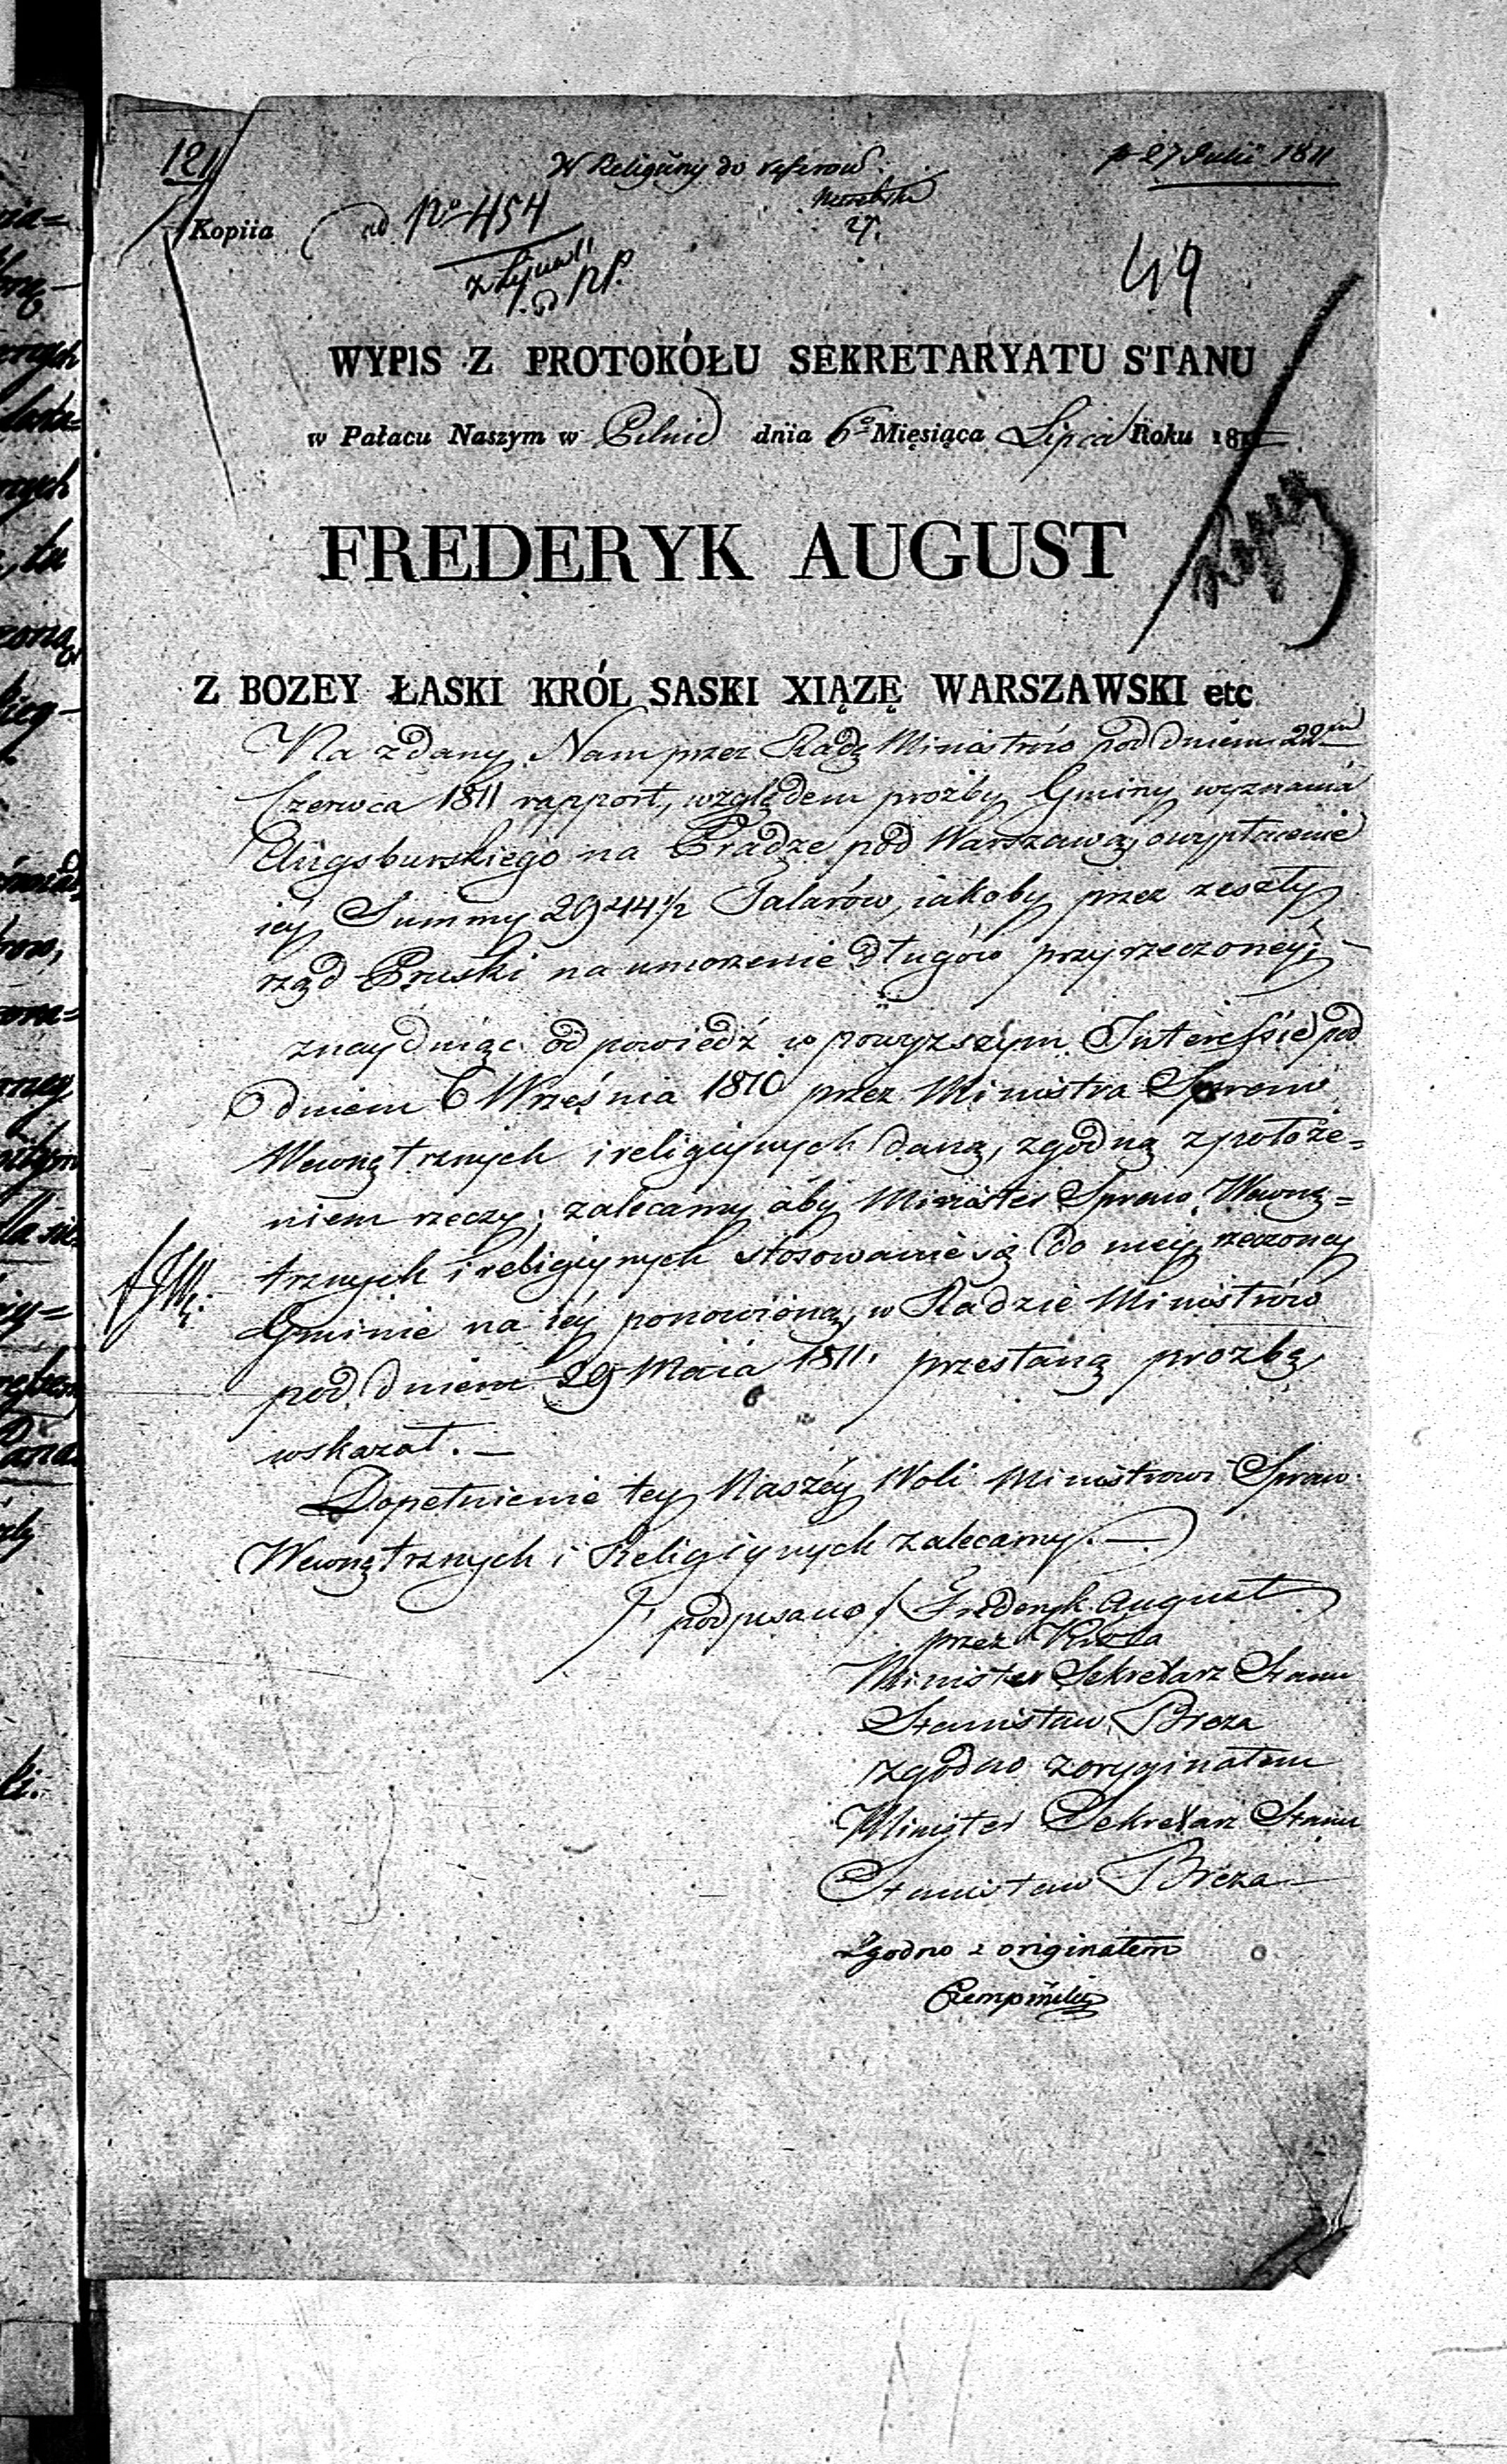 121
W Religiiny do referow.
p 27 Julii 1811
Kopiia
ad No 454
27.
49
WYPIS Z PROTOKÓŁU SEKRETARYATU STANU
w Pałacu Naszym w Pilnic dnia 6o Miesiąca Lipca Roku 181
FREDERYK AUGUST
Z BOZEY ŁASKI KRÓL SASKI XIĄZĘ WARSZAWSKI etc
Na zdany Nam przez Radę Ministrów pod dniem 22m
Czerwca 1811 rapport, względem proźby Gminy wyznania
Augsburskiego na Pradze pod Warszawą, o wypłacenie
iéy Summy 2944½ Talarów, iakoby przez zeszły
rząd Pruski na umorzenie długów przyrzeczonéy; —
znayduiąc odpowiedź w powyzszym Interessie pod
dniem 6 Września 1810 przez Ministra Spraw
Wewnętrznych i religiynych daną, zgodną z połoze=
niem rzeczy; zalecamy aby Minister Spraw Wewnę=
trznych i religiynych stosowanie się do niéy rzeczonéy
Gminie na iéy ponowioną, w Radzie Ministrów
pod dniem 29 Maia 1811. przesłaną prozbę
wskazał. —
Dopełnienie téy Naszéy Woli Ministrowi Spraw
Wewnętrznych i Religiynych zalecamy. —
/ podpisano / Frederyk August
przez Króla
Minister Sekretarz Stanu
Stanisław Breza
zgodno z oryginałem
Minister Sekretarz Stanu
Stanisław Breza
zgodno z originałem